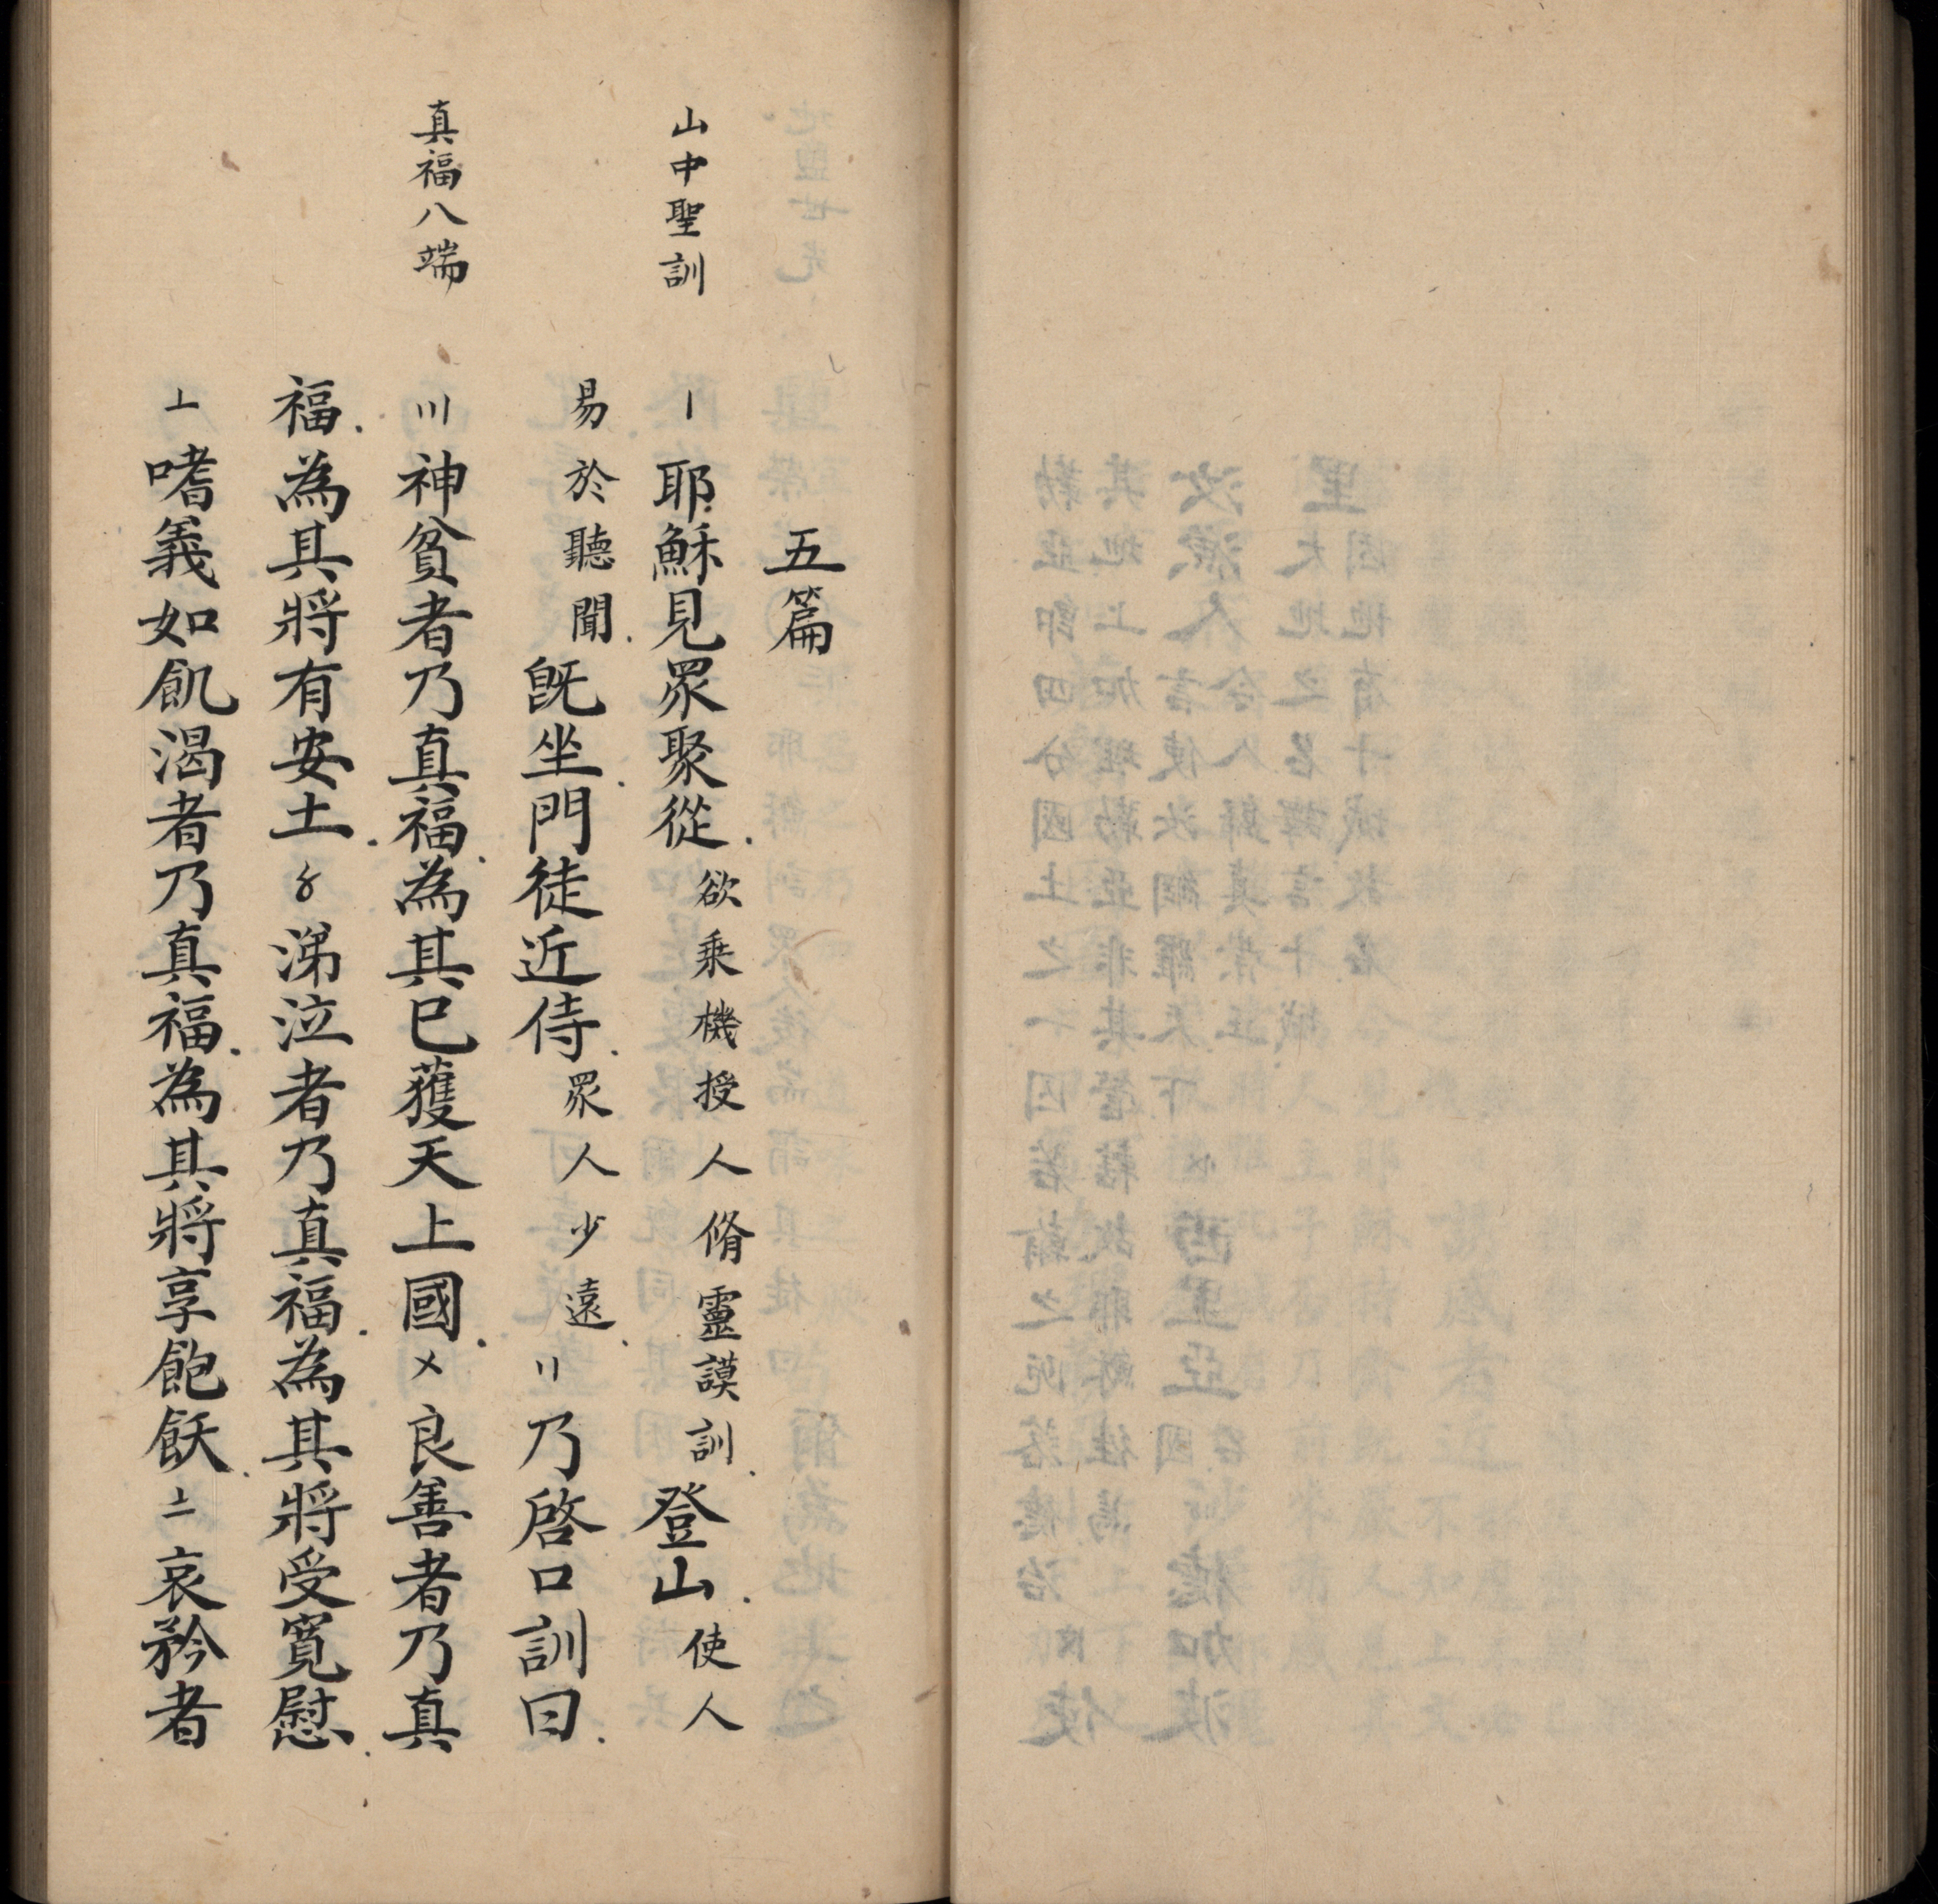 五篇
山中聖訓
〡耶穌見眾聚從.欲乗機授人脩靈謨訓.登山.使人
易於聽聞.既坐.門徒近侍.眾人少遠.〢乃啓口訓曰.
真福八端
〣神貧者乃真福.為其已獲天上國.〤良善者乃真
福.為其將有安土.〥涕泣者乃真福.為其將受寬慰.
〦嗜義如飢渴者乃真福.為其將享飽飫.〧哀矜者